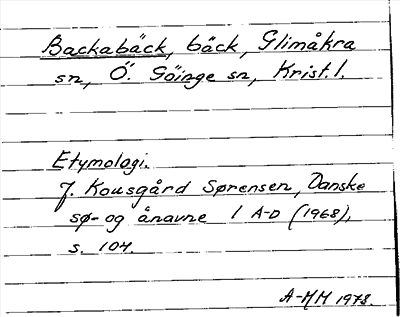 Backabäck, bäck, Glimåkra
sn, Ö. Göinge sn, Krist. l.
Etymologi.
J. Kousgård Sørensen, Danske
sø- og ånavne 1 A-D (1968),
s. 104.
A-MM 1978.